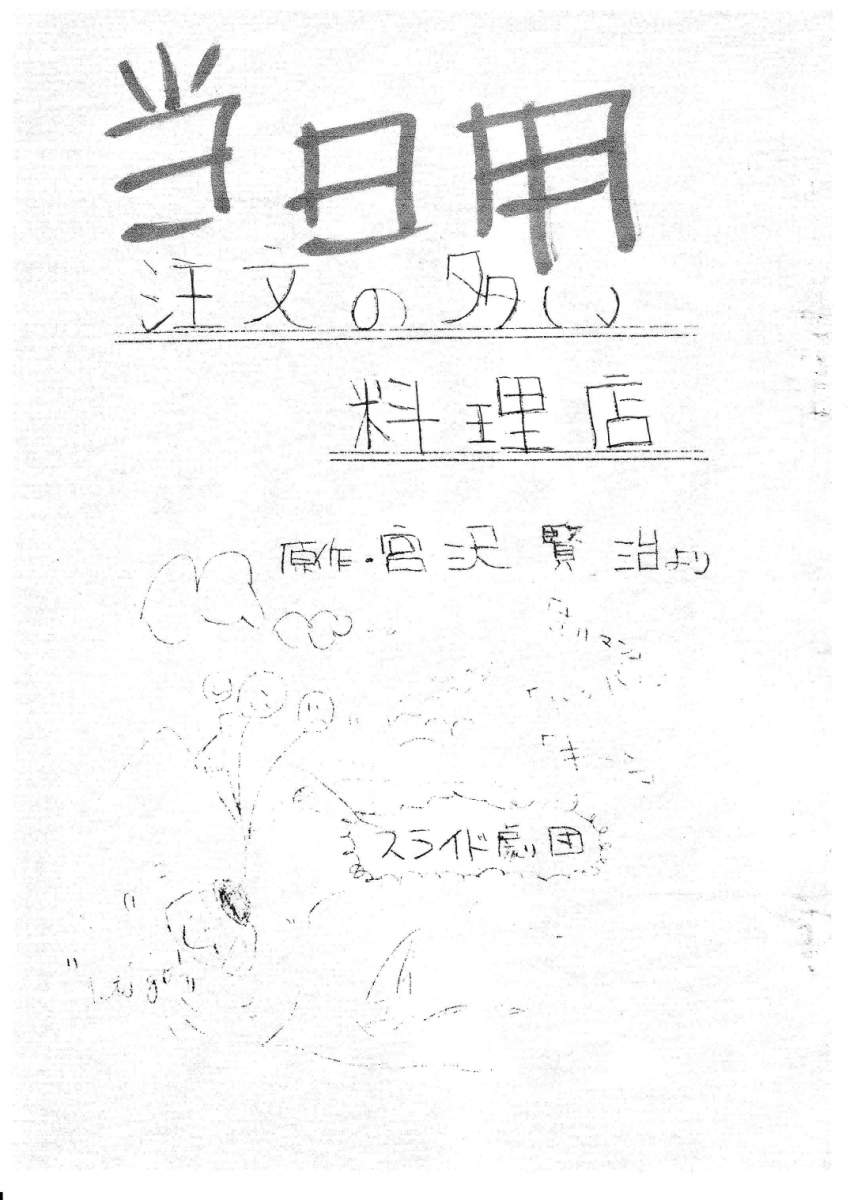 当日用
注文の多い
料理店
原作・宮沢賢治より
スライド劇団